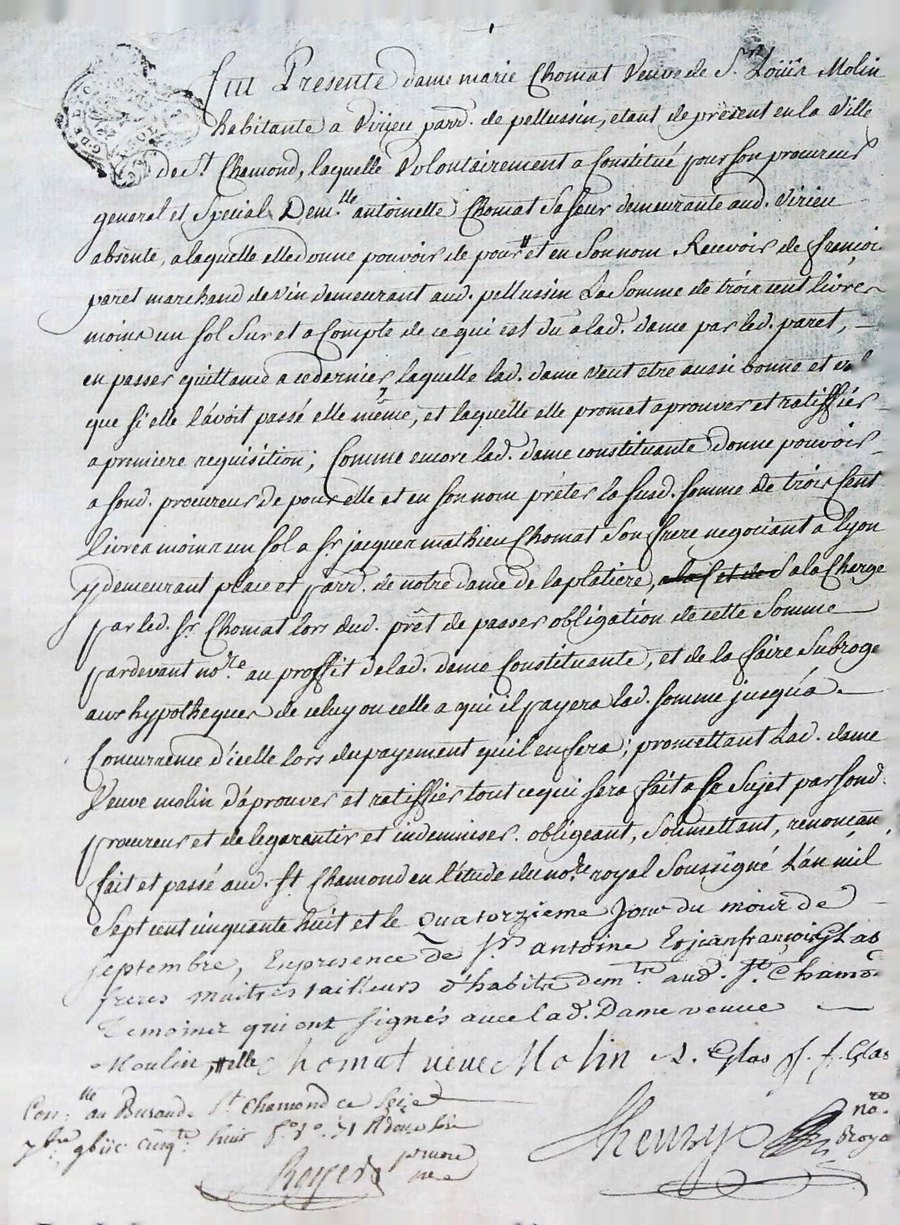 fut Presente dame marie Chomat Veuve de Sr Loüis Molin
habitante a Virieu parr. de pellussin, etant de present en la Ville
de St Chamond, laquelle Volontairement a Constitué pour son procureur
general et Special Demlle antoinette Chomat sa sœur demeurante aud. Virieu
absente, a laquelle elle donne pouvoir de pour et en Son nom Recevoir de françoi
paret marchand de vin demeurant aud. pellussin La Somme de trois cent livres
moins un sol Sur et a Compte de ce qui est dû a lad. dame par led. paret,
en passer quittance a ce dernier, laquelle lad. dame veut etre aussi bonne et val
que si elle l'avoit passé elle même, et laquelle elle promet aprouver et ratiffier
a premiere requisition; Comme encore lad. dame constituante donne pouvoir
a sond. procureur de pour elle et en son nom prêter la susd. somme de trois Cent
livres moins un sol a Sr jacques mathieu Chomat Son frere negotiant a Lyon
y demeurant place et parr. de notre dame de la platiere, a la Charge
par led. Sr Chomat lors dud. prêt de passer obligation de cette Somme
pardevant nore au proffit de lad. dame Constituante, et de la faire Subroge
aux hypotheques de celuy ou celle a qui il payera lad. somme jusqu'a
Concurrence d'icelle lors du payement qu'il en fera; promettant Lad. dame
Veuve molin d'aprouver et ratiffier tout ce qui sera fait a Ce Sujet par sond.
procureur et de le garantir et indemniser. obligeant, soumettant, renonçan
fait et passé aud. St Chamond en l'étude du nore royal Soussigné L'an mil
Sept cent cinquante huit et le quatorzieme jour du mois de
septembre, En presence de Srs antoine Et jean françois Glas
freres maitres tailleurs d'habits demts aud. St Chamond
Temoins qui ont signés avec lad. Dame veuve
Moulin, elle Chomat veuve Molin A. Glas J. f. Glas
Conlle au Bureau de St Chamond ce Seize
7bre cinqte huit
Royer
Thenry no. Royal